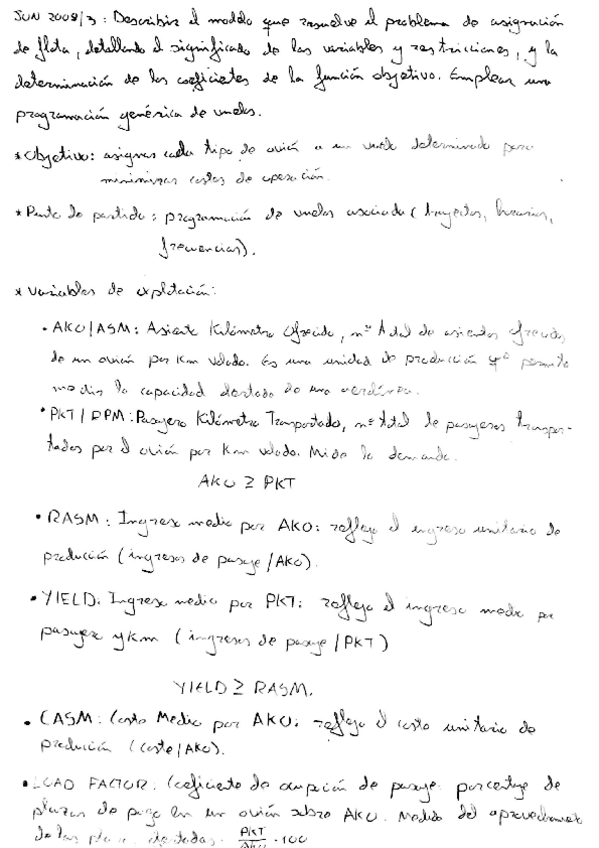 JUN 2009/3: Describir el modelo que resuelve el problema de asignación
de flota, detallando el significado de las variables y restricciones, y la
determinación de los coeficientes de la función objetivo. Emplear una
programación genérica de vuelos.
* Objetivo: asignar cada tipo de avión a un vuelo determinado para
minimizar costes de operación.
* Punto de partida: programación de vuelos asociada (trayectos, horarios,
frecuencias).
* Variables de explotación:
• AKO/ASM: Asiento Kilómetro Ofrecido, nº total de asientos ofrecidos
de un avión por km volado. Es una unidad de producción qº permite
medir la capacidad de una aerolínea.
• PKT / RPM: Pasajero Kilómetro Transportado, nº total de pasajeros transpor-
tados por el avión por km volado. Mide la demanda.
AKO ≥ PKT
• RASM: Ingreso medio por AKO: refleja el ingreso unitario de
producción (ingresos de pasaje /AKO).
• YIELD: Ingreso medio por PKT: refleja el ingreso medio por
pasajero y km (ingresos de pasaje / PKT)
YIELD ≥ RASM.
• CASM: Coste Medio por AKO: refleja el coste unitario de
producción (coste/AKO).
• LOAD FACTOR: Coeficiente de ocupación de pasaje: porcentaje de
plazas de pago en un avión sobre AKO. Medida del aprovechamiento
de las plazas PKT/AKO · 100